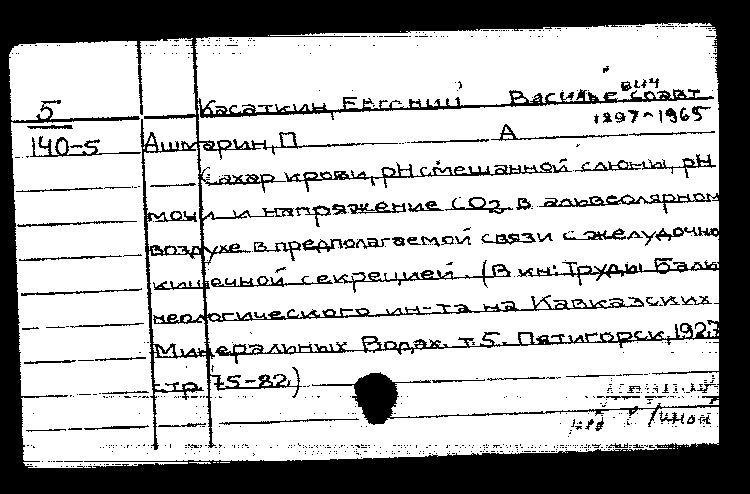 5
140-5
Касаткин, Евгений Василье вич соавт
1897-1965
Ашмарин, П А
Сахар крови, pH смешанной слюны, pH
мочи и напряжение CO2 в альвеолярном
воздухе в предполагаемой связи с желудочно
кишечной секрецией. (В кн: Труды Баль
неологического ин-та на Кавказских
Минеральных Водах. т. 5. Пятигорск, 1927
стр. 75-82)